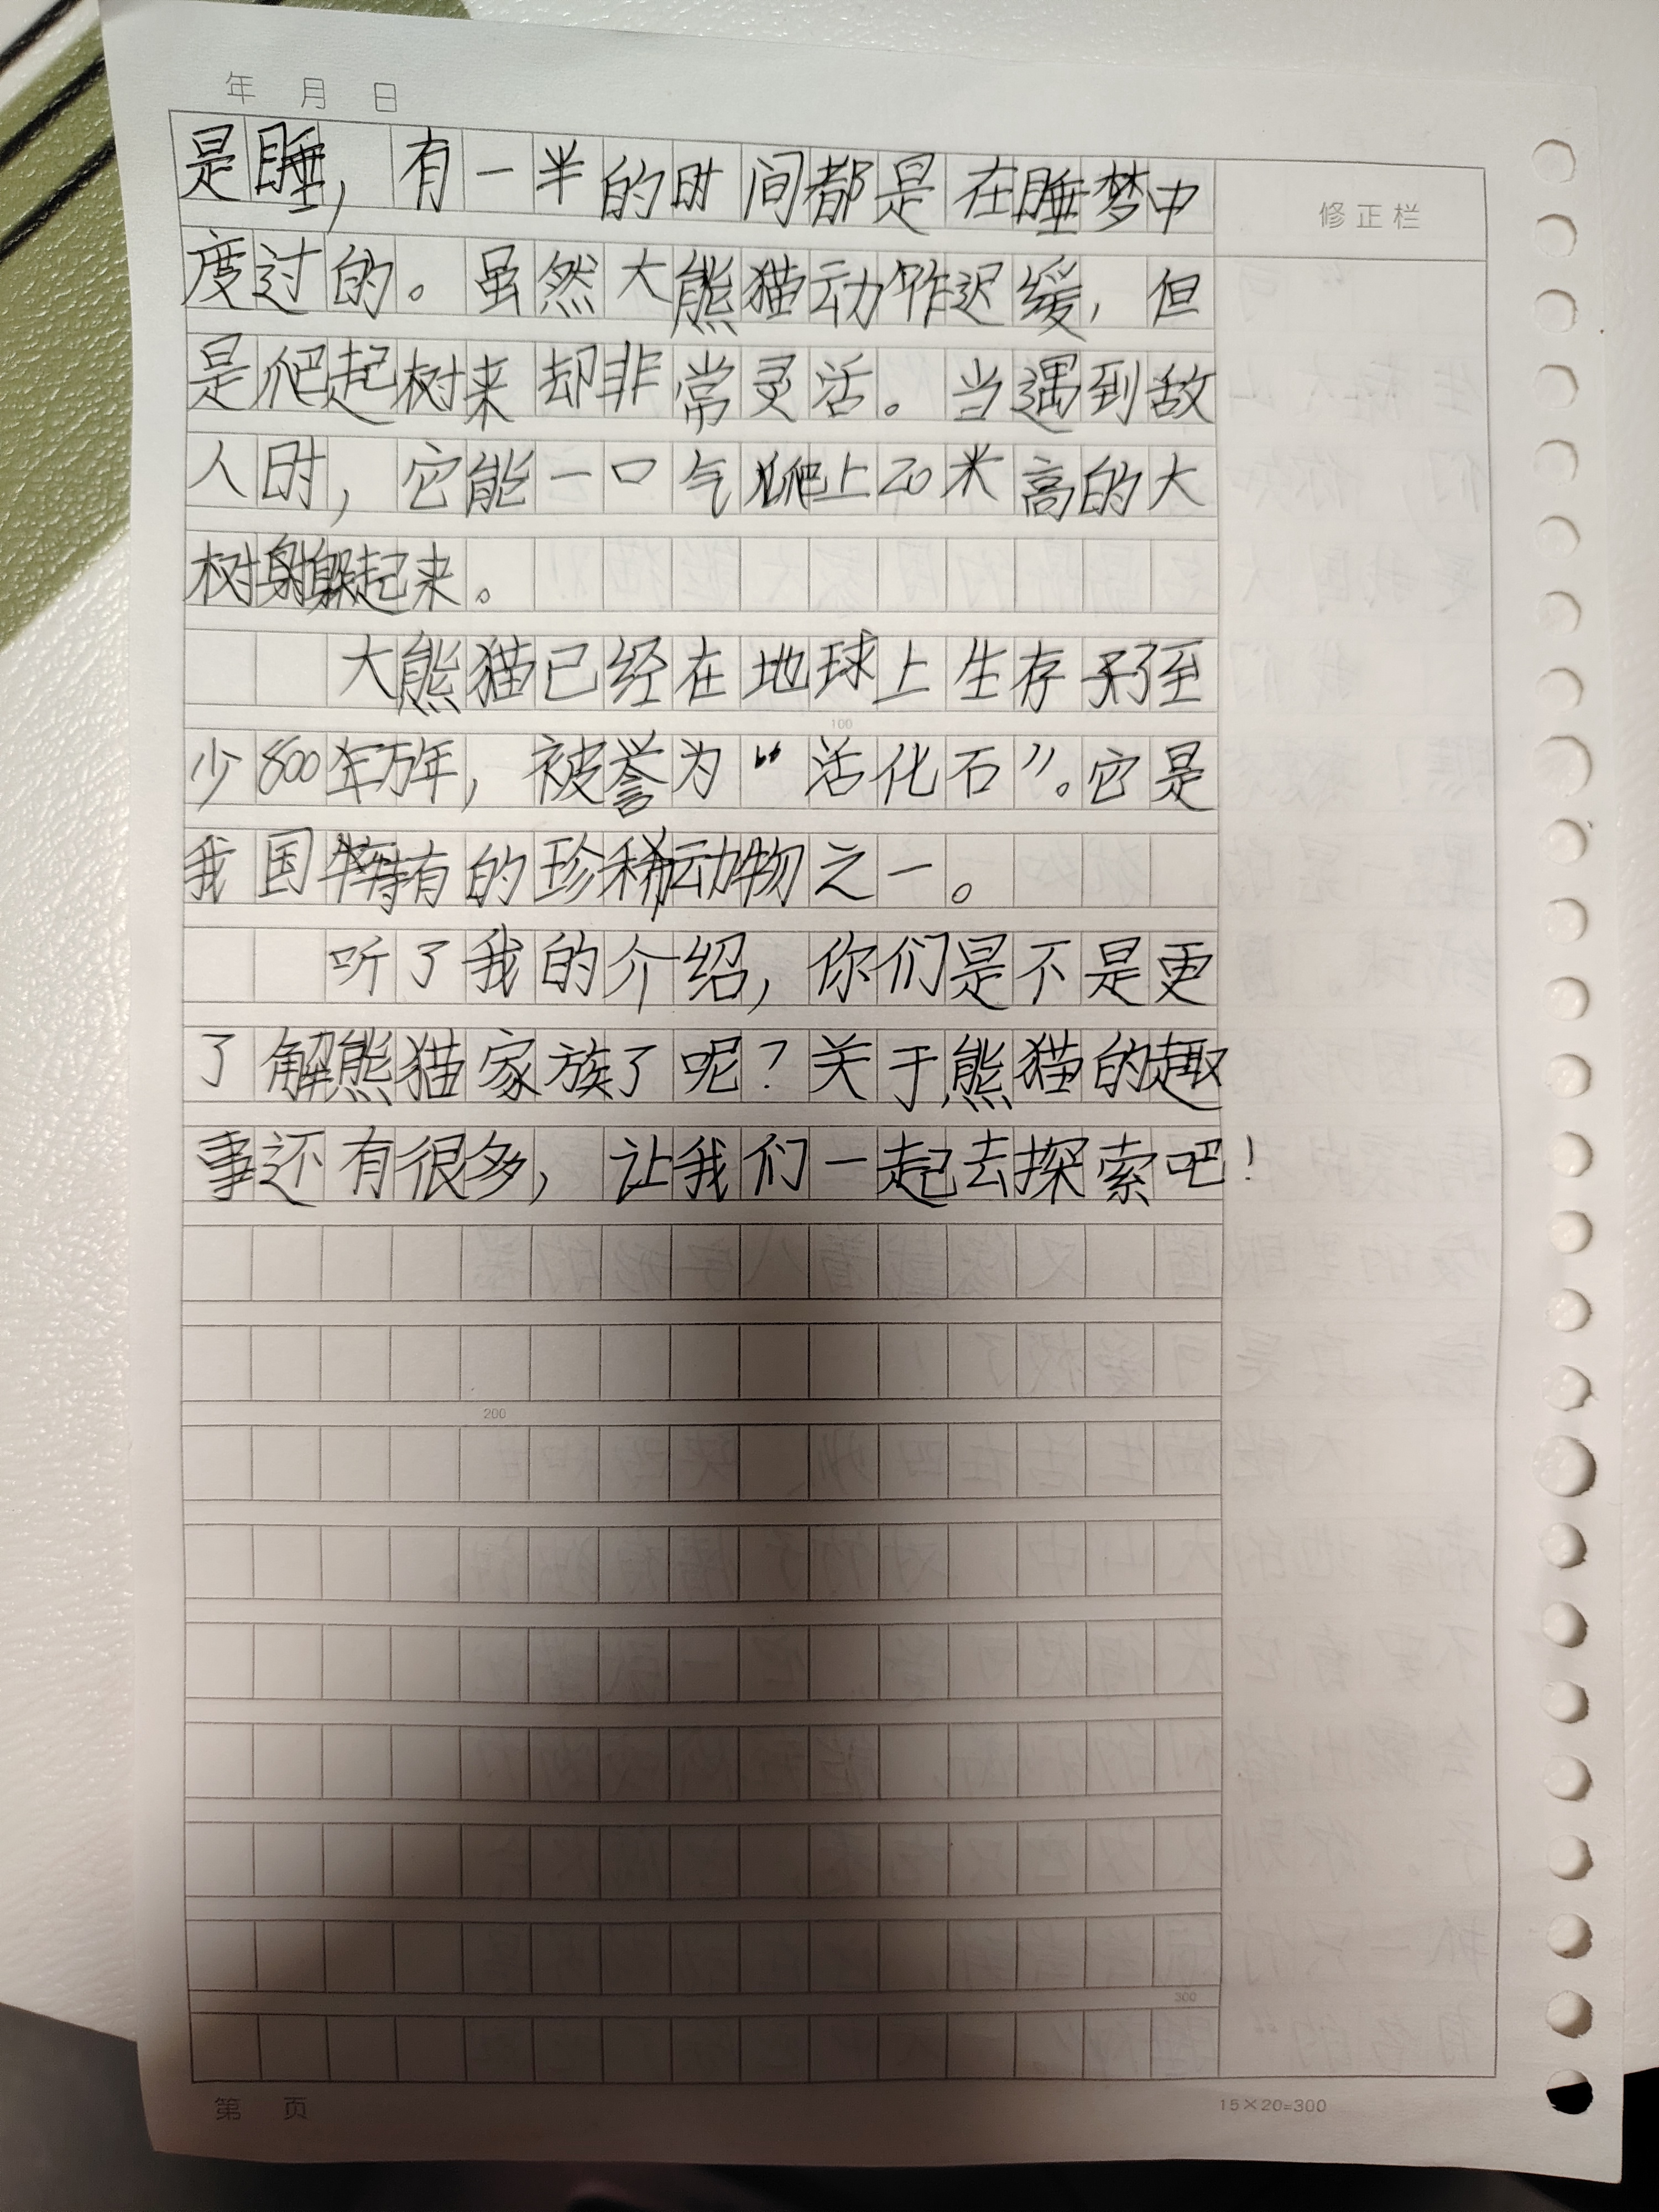 年 月 日
修正栏
是睡，有一半的时间都是在睡梦中
度过的。虽然大熊猫动作迟缓，但
是爬起树来却非常灵活。当遇到敌
人时，它能一口气爬上20米高的大
树躲起来。
大熊猫已经在地球上生存了至
100
少800万年，被誉为“活化石”。它是
我国特有的珍稀动物之一。
听了我的介绍，你们是不是更
了解熊猫家族了呢？关于熊猫的趣
事还有很多，让我们一起去探索吧！
200
300
第 页
15×20=300